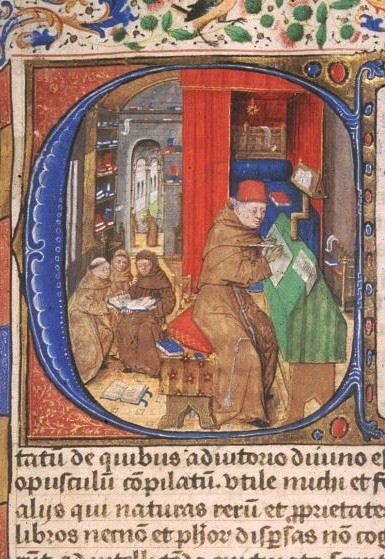 tatū de quibus adiutorio diuino e
opusculū cōpilatū. vtile michi et f
alijs qui naturas rerū et ꝓprietate
libros necnō et ph̄oꝝ disꝑsas nō cog